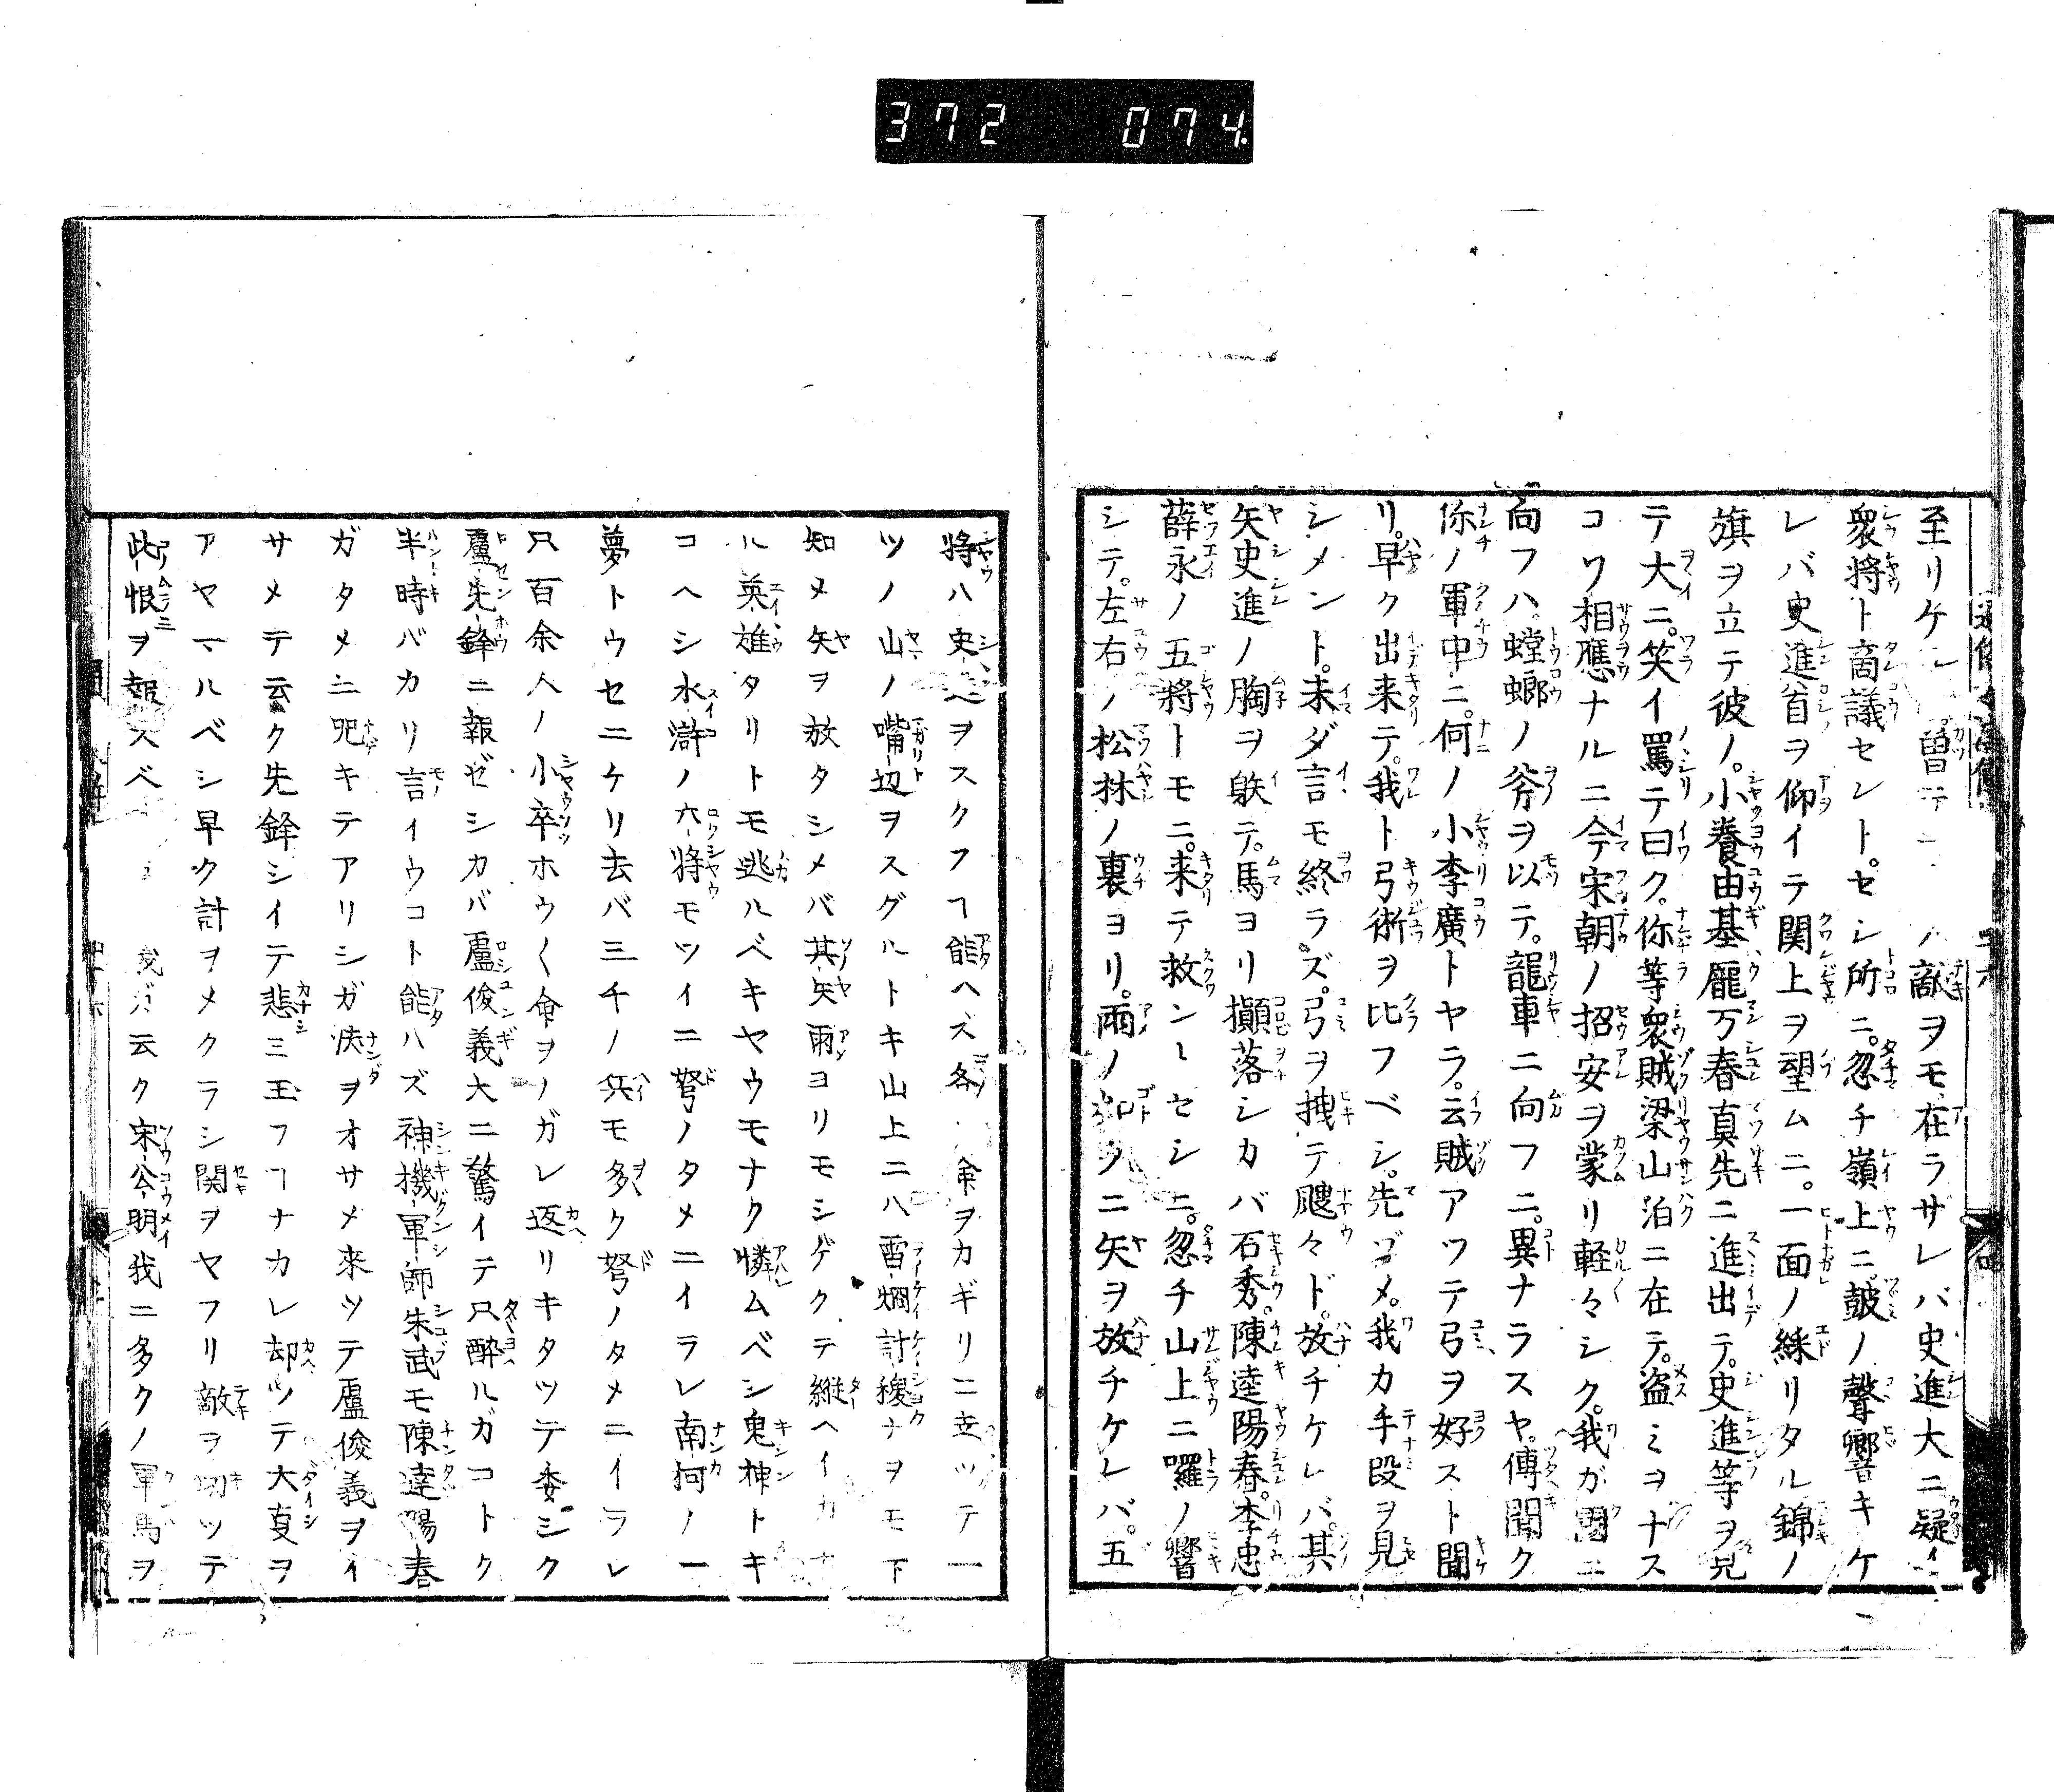 372 074
至リケレ曽テ敵ヲモ在ラサレバ史進大ニ疑イ
衆将ト商議セントセシ所ニ忽チ嶺上ニ皷ノ聲響キケ
レバ史進首ヲ仰イテ関上ヲ望ムニ一面ノ綵リタル錦ノ
旗ヲ立テ彼ノ小養由基龐万春真先ニ進出テ史進等ヲ見
テ大ニ笑イ罵テ曰ク你等衆賊梁山泊ニ在テ盗ミヲナス
コソ相應ナルニ今宋朝ノ招安ヲ蒙リ軽々シク我ガ國ニ
向フハ螳螂ノ斧ヲ以テ龍車ニ向フニ異ナラスヤ傳聞ク
你ノ軍中ニ何ノ小李廣トヤラ云賊アツテ弓ヲ好スト聞ケ
リ早ク出来テ我ト弓術ヲ比フベシ先ヅメ我カ手段ヲ見
シメント未ダ言モ終ラズ弓ヲ拽テ颼々ド放チケレバ其
矢史進ノ胸ヲ躾テ馬ヨリ顚落シカバ石秀陳逵陽春李忠
薛永ノ五将トモニ来テ救ントセシニ忽チ山上ニ囉ノ響
シテ左右ノ松林ノ裏ヨリ雨ノ如クニ矢ヲ放チケレバ五
将ハ史ヘヲスクフヿ能ヘズ各命ヲカギリニ立ツテ一
ツノ山ノ嘴辺ヲスグルトキ山上ニハ雷烱計稷ナヲモ下
知メ矢ヲ放タシメバ其矢雨ヨリモシゲクテ縦ヘイカナ
ル英雄タリトモ逃ルベキヤウモナク憐ムベシ鬼神トキ
コヘシ水滸ノ六将モツイニ弩ノタメニイラレ南柯ノ一
夢トウセニケリ去バ三千ノ兵モ多ク弩ノタメニイラレ
只百余人ノ小卒ホウ〱命ヲノガレ返リキタツテ委シク
盧先鋒ニ報ゼシカバ盧俊義大ニ驚イテ只酔ルガコトク
半時バカリ言イウコト能ハズ神機軍師朱武モ陳達陽春
ガタメニ咒キテアリシガ泱ヲオサメ来ツテ盧俊義ヲイ
サメテ云ク先鋒シイテ悲ミ玉フヿナカレ却ツテ大夏ヲ
アヤマルベシ早ク計ヲメクラシ関ヲヤフリ敵ヲ切ツテ
此恨ヲ報スベ 我ガ云ク宋公明我ニ多クノ軍馬ヲ